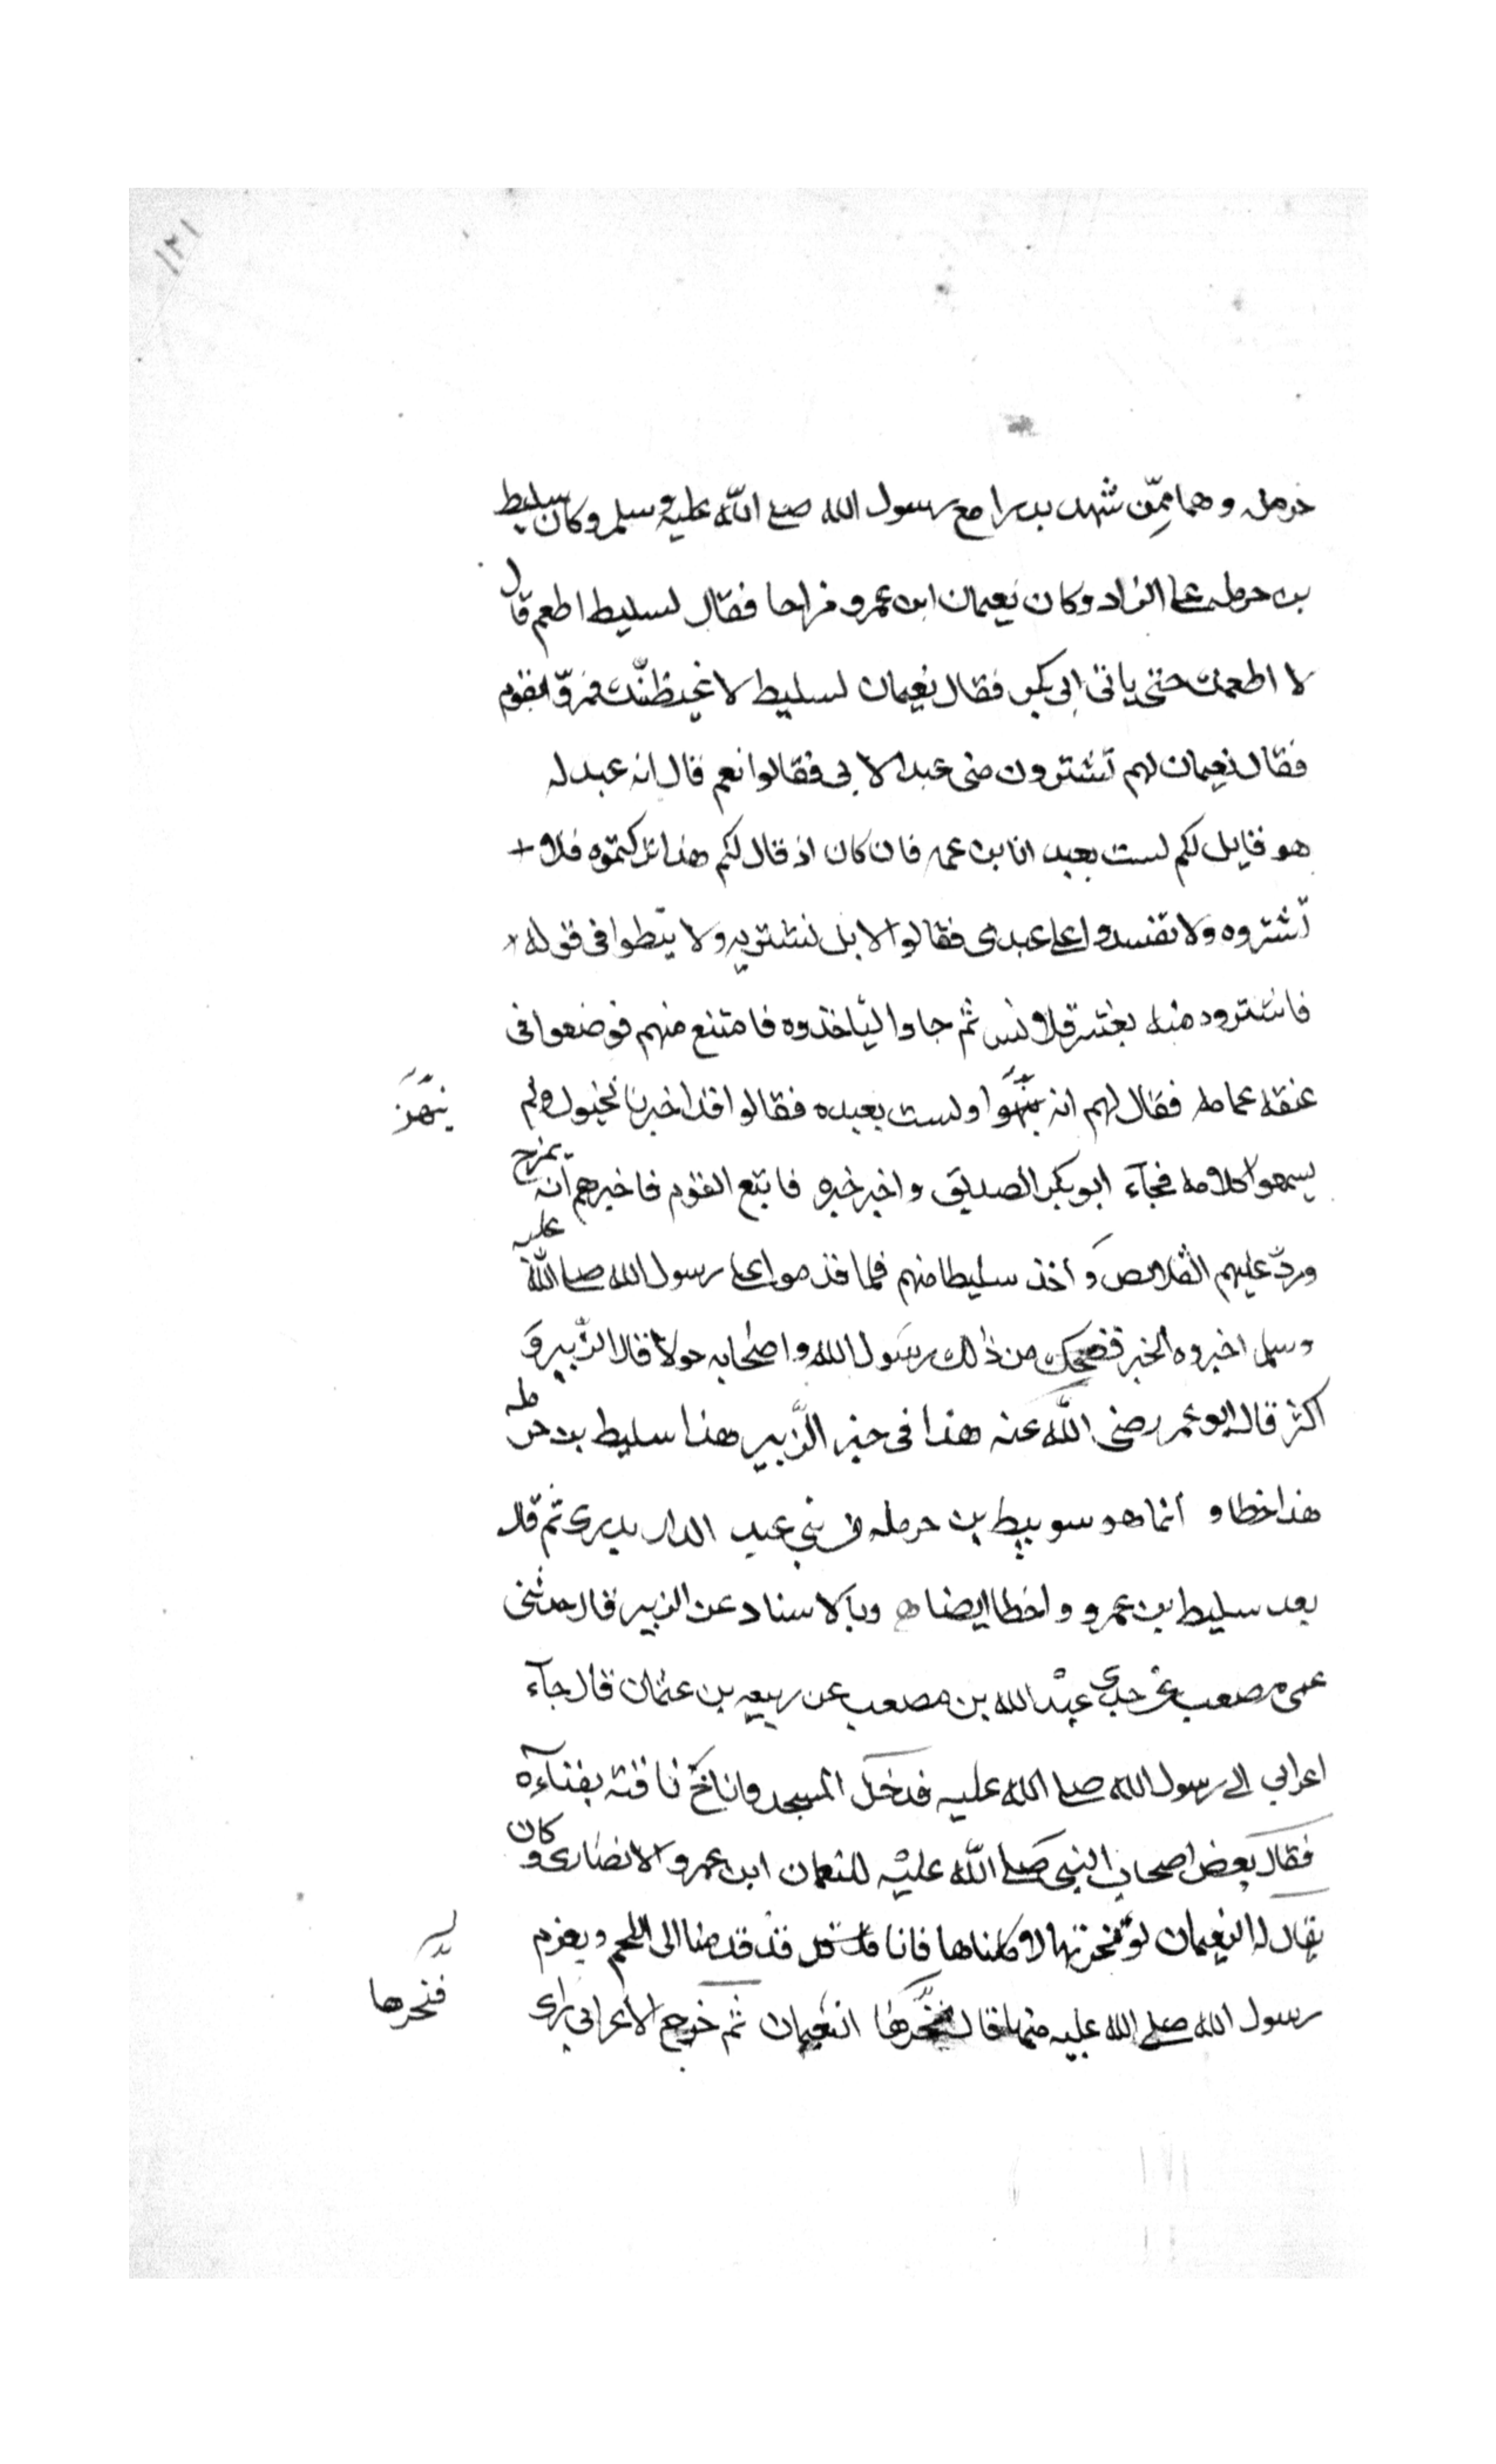 ١٢١
حرمله وهما ممّن شهد بدرا مع رسول الله صلى اللّه عليه وسلم وكان سليط
بن حرمله على الزاد وكان نعيمان ابن عمرو مزاحا فقال لسليط اطعم قال
لا اطعمك حتى ياتى ابى بكر فقال نعيمان لسليط لاغيظنّك فمرّ بقوم
فقال نعيمان لهم تشترون منى عبدا لى فقالوا نعم قال انه عبد له
هو قايل لكم لست بعبد انا بن عمه فان كان اذ قال لكم هذا تركتموه فلا
تشتروه ولا تفسدوا على عبدى فقالوا لا بل نشتريه ولا ينظوا فى قوله
فاشتروه منه بعشر قلايص ثم جاوا لياخذوه فامتنع منهم فوضعوا فى
عنقه عمامه فقال لهم انه يتهزّوا ولست بعبده فقالوا قد اخبرنا ولم
يتهزّ
يسمعوا كلامه فجآء ابو بكر الصديق واخبر خبره فاتبع القوم فاخبرهم انه يمزح
وردّ عليهم القلايص وأخذ سليطا منهم فلما قدموا على رسول الله صلى اللّه عليه
وسلم اخبروه الخبر فضحك من ذلك رسول الله واصحابه حولا قال الزّبير و
اكثر قال ابو عمر رضى اللّه عنه هذا فى خبر الزّبير هذا سليط بن حرمله
هذا خطا و انما هو سويبط بن حرمله من بنى عبد الدار بدرى ثم قال
بعد سليط بن عمرو واخطا ايضا ه وبالاسناد عن الزبير قال حدثنى
عمى مصعب عن جدى عبد الله بن مصعب عن ربيعه بن عثمان قال جآء
اعرابي الى رسول الله صلى الله عليه فدخل المسجد واناخ ناقته بفنآءه
فقال بعض اصحاب النبى صلى اللّه عليه للنعمان ابن عمرو الانصارى وكان
يقال له النعيمان لو نحرتها لاكلناها فانا قد قدمنا الى اللحم ويغرم
رسول الله صلى الله عليه منها قال فنحرها النعيمان ثم خرج الاعرابى براى
فنحرها